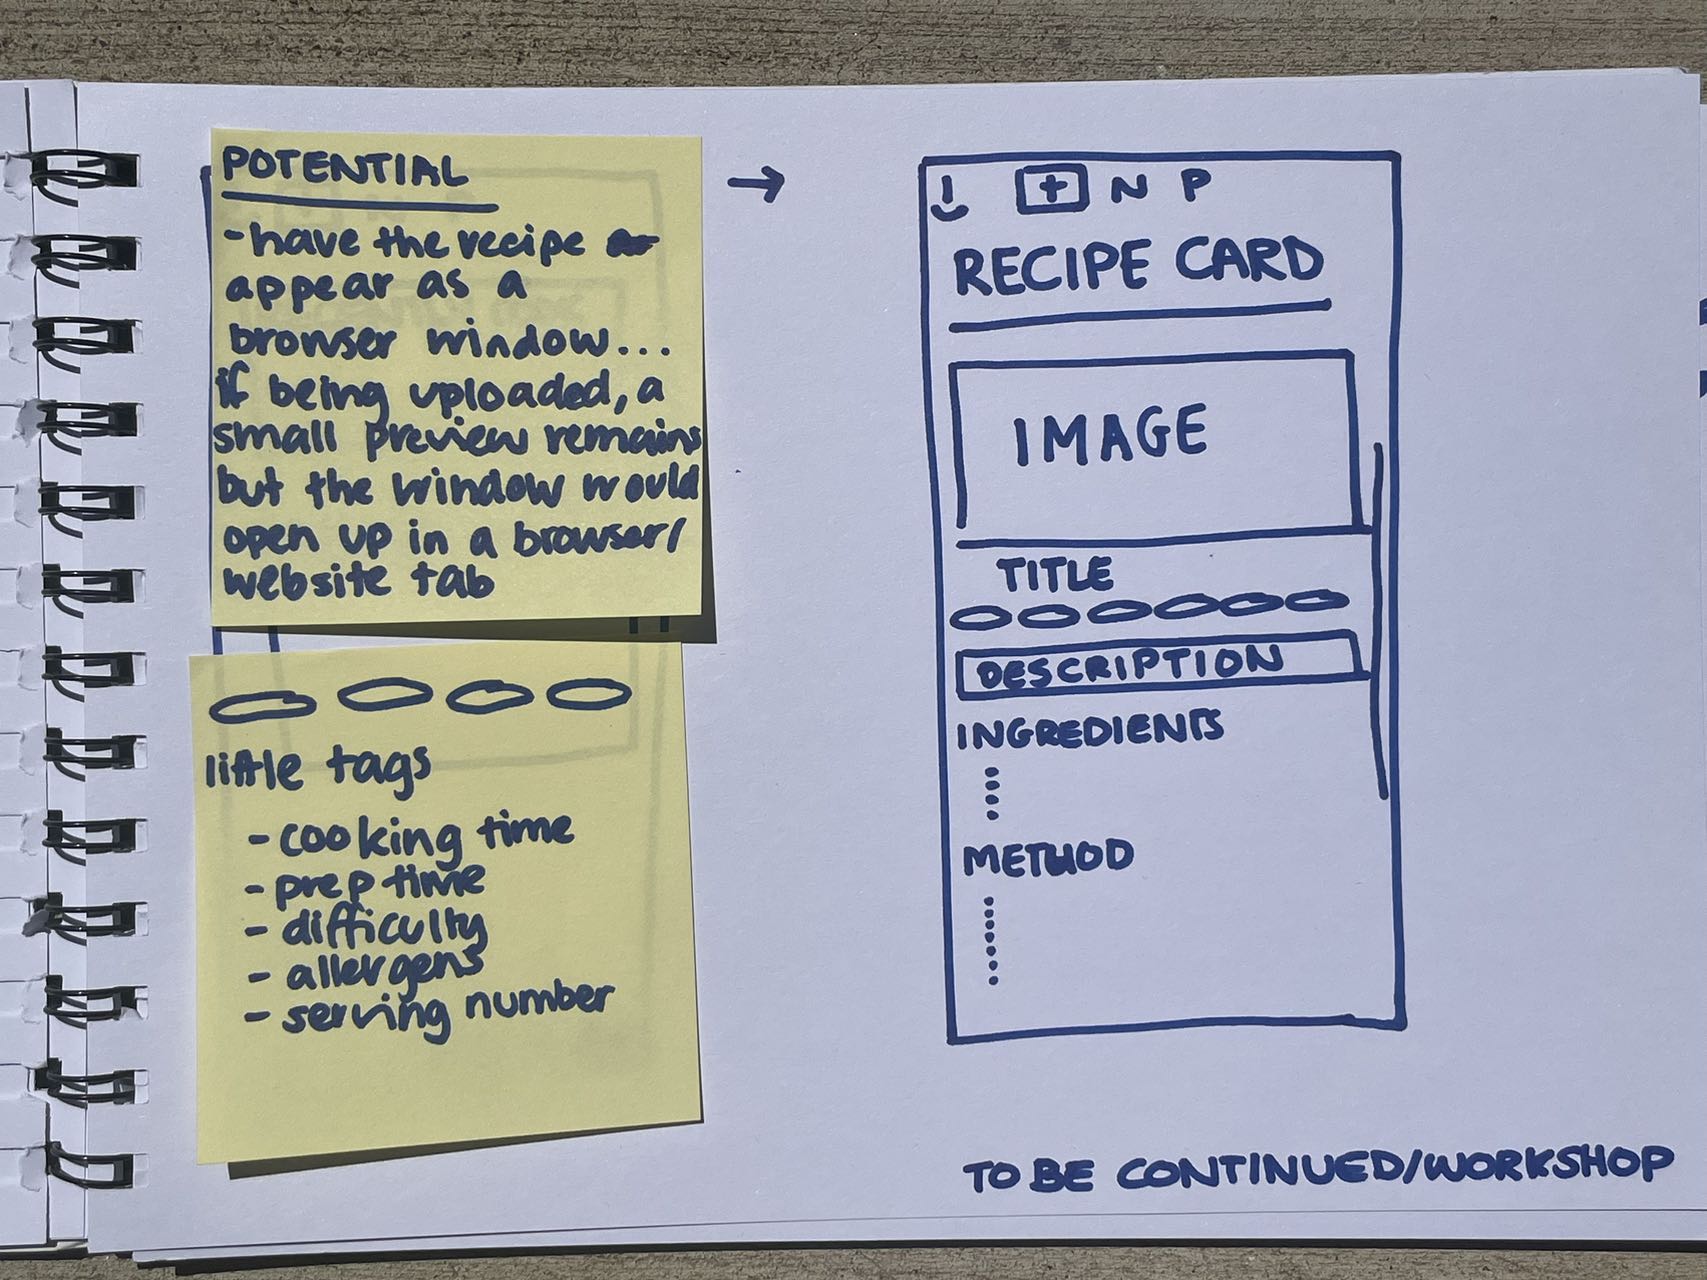 POTENTIAL
- have the recipe
appear as a
browser window...
if being uploaded, a
small preview remains
but the window would
open up in a browser/
website tab
little tags
- cooking time
- prep time
- difficulty
- allergens
- serving number
+ N P
RECIPE CARD
IMAGE
TITLE
DESCRIPTION
INGREDIENTS
METHOD
TO BE CONTINUED/WORKSHOP